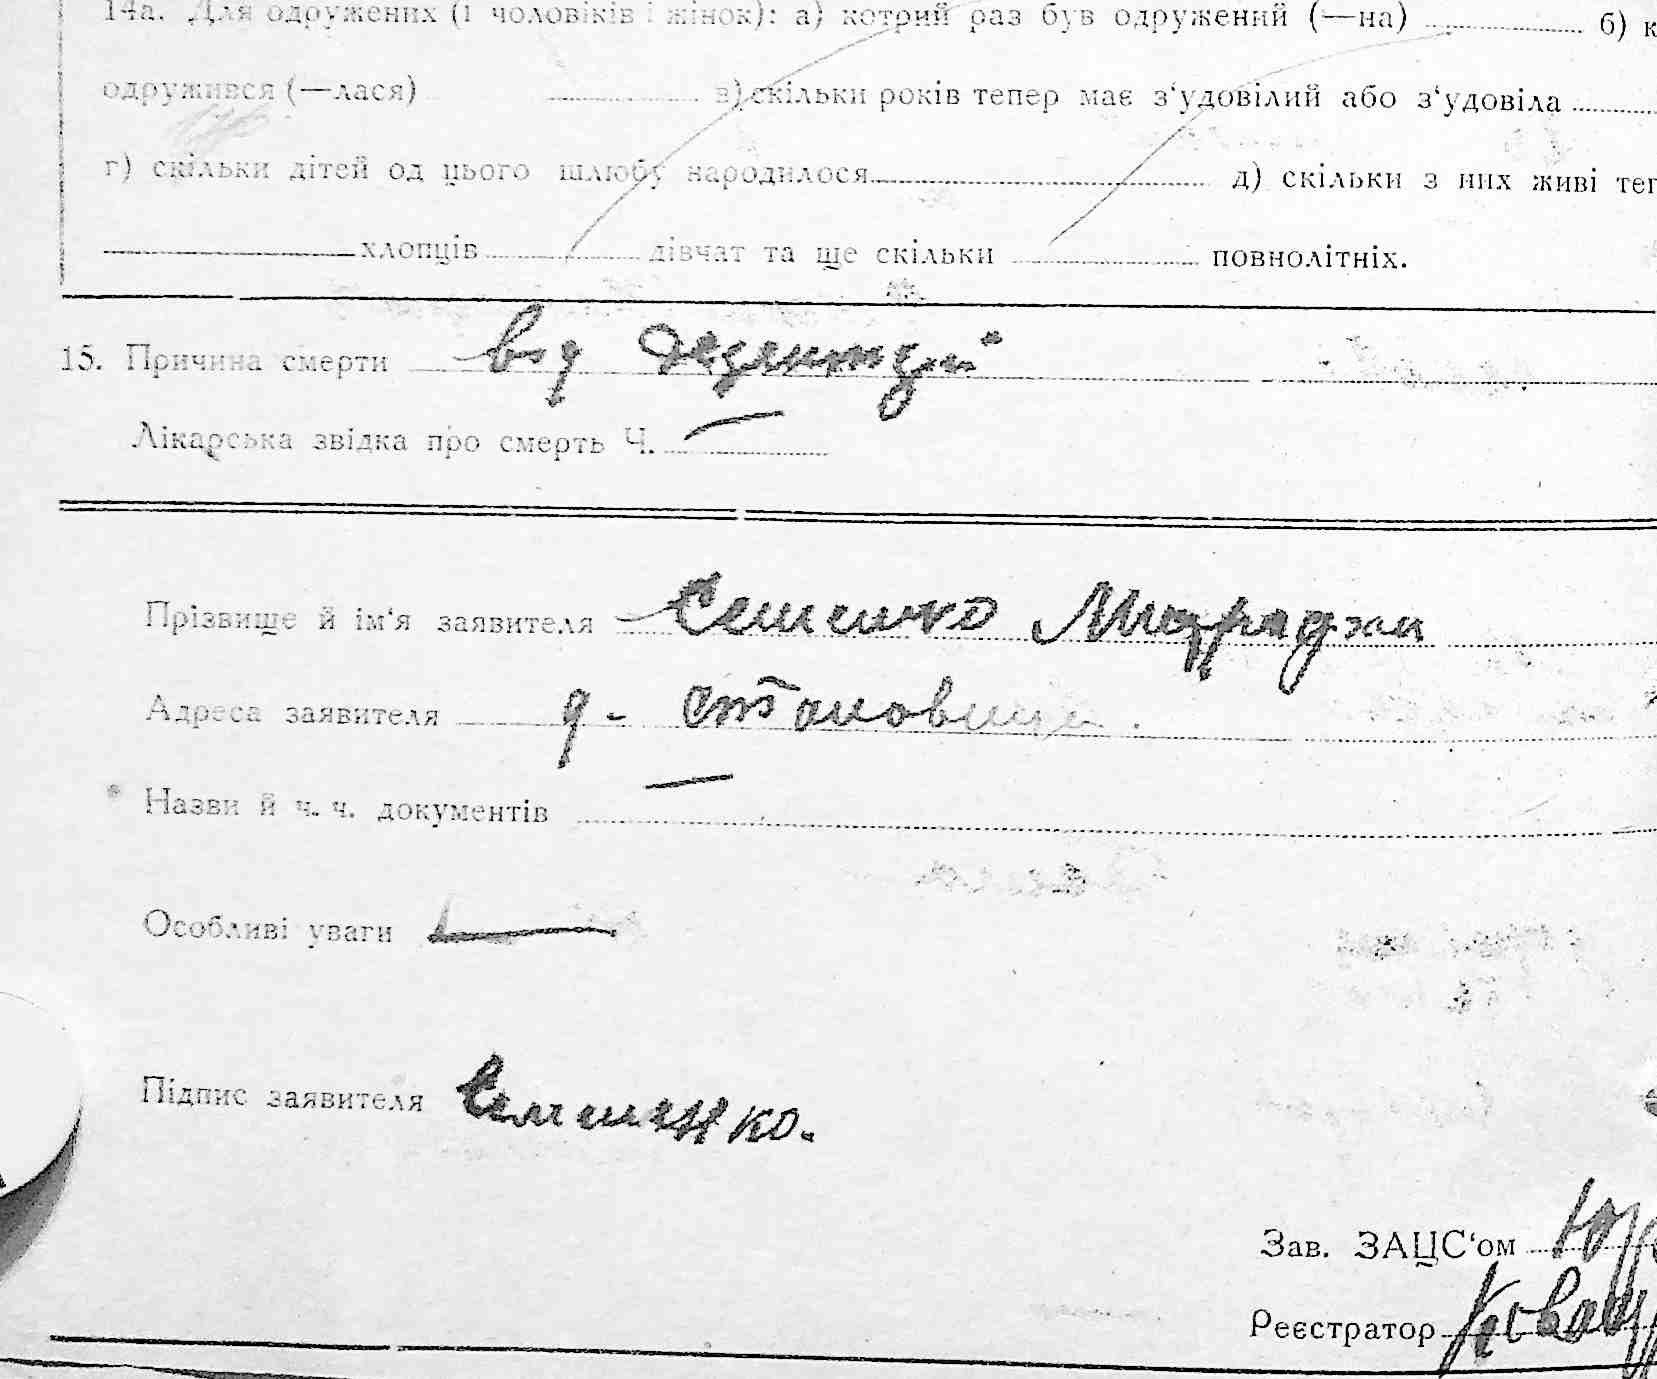 14а. Для одружених (і чоловіків і жінок): а) котрий раз був одружений (—на) б) к
одружився (—лася) в) скільки років тепер має з‘удовілий або з‘удовіла
г) скільки дітей од цього шлюбу народилося д) скільки з них живі теп
хлопців дівчат та ще скільки повнолітніх.
15. Причина смерти від
Лікарська звідка про смерть Ч. —
Прізвище й ім‘я заявителя Семенко
Адреса заявителя
Назви й ч. ч. документів —
Особливі уваги —
Підпис заявителя Семенко.
Зав. ЗАЦС‘ом
Реєстратор